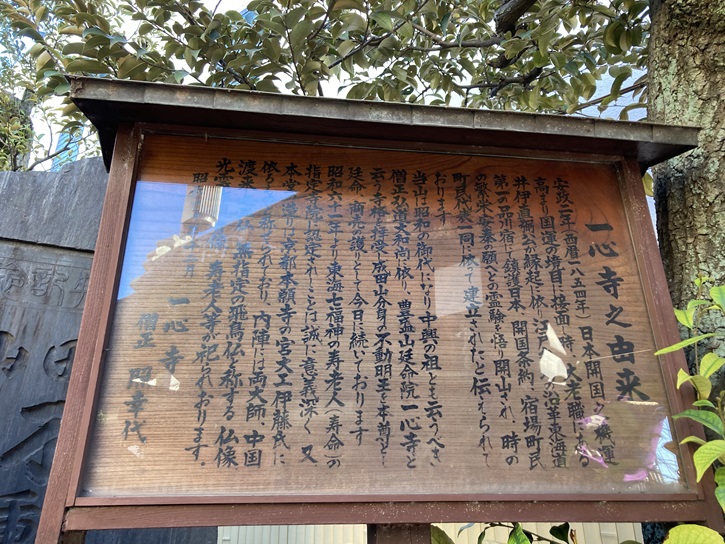 一心寺之由来
安政二年(西暦一八五四年)日本開国の機運
高まり国運の境目に接面し時の大老職にある
井伊直弼公の縁起に依り江戸の沿革東海道
第一の品川宿にて鎮護日本、開国条約、宿場町民
の繁栄の業の願へとの霊験を悟り開山され、時の
町民代表一同に依って建立されたと伝えられて
おります。
当山は昭和の御代になり中興の祖とも云うべき
僧正弘道大和尚に依り、豊盛山延命院一心寺と
云う寺格を拝受し成田山分身の不動明王を本尊とし
延命、商売の護りとして今日に続いております
昭和六十二年より東海七福神の寿老人(寿命)の
指定寺院に指定されしことは誠に意義深く、又
本堂の造りは京都本願寺の宮大工伊藤氏に
依る おり、内陣には両大師、中国
渡来 無指定の飛鳥仏と称する仏像
光雲 寿老人等が祀られております。
昭 月
一心寺
僧正 幸代